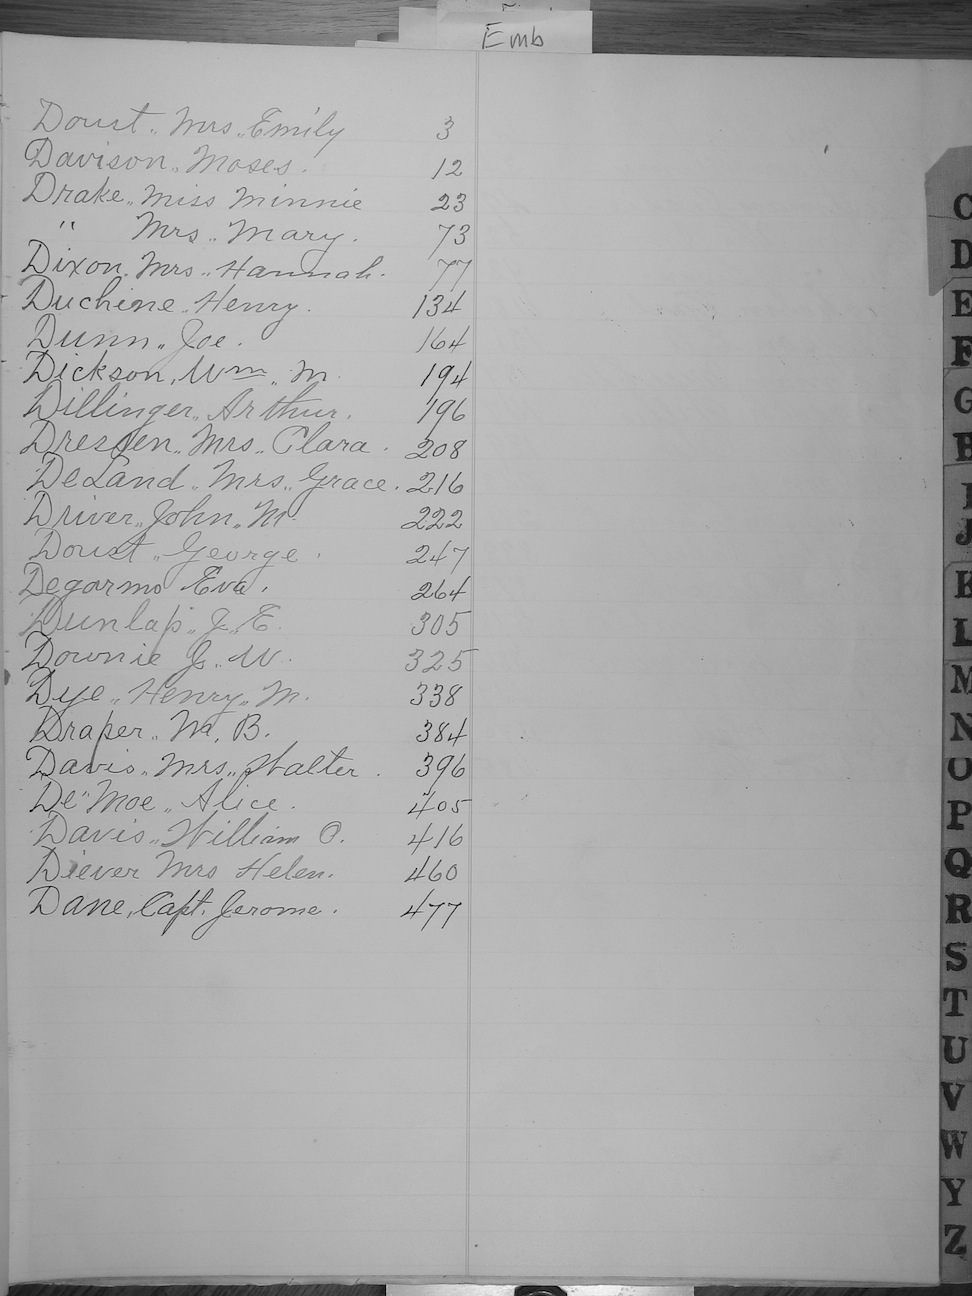 Emb
Doust. Mrs. Emily 3
Davison. Moses. 12
Drake. Miss Minnie 23
" Mrs. Mary. 73
Dixon. Mrs. Hannah. 77
Duchine. Henry. 134
Dunn. Joe. 164
Dickson, Wm. M. 194
Dillinger. Arthur. 196
Dresden. Mrs. Clara. 208
DeLand. Mrs. Grace. 216
Driver. John. M. 222
Doust. George. 247
Degarmo Eva. 264
Dunlap. J. E. 305
Downie J. W. 325
Dye. Henry. M. 338
Draper. M. B. 384
Davis. Mrs. Walter. 396
De"Moe. Alice. 405
Davis. William O. 416
Diever Mrs Helen. 460
Dane, Capt. Jerome. 477
C
D
E
F
G
H
I
J
K
L
M
N
O
P
Q
R
S
T
U
V
W
Y
Z